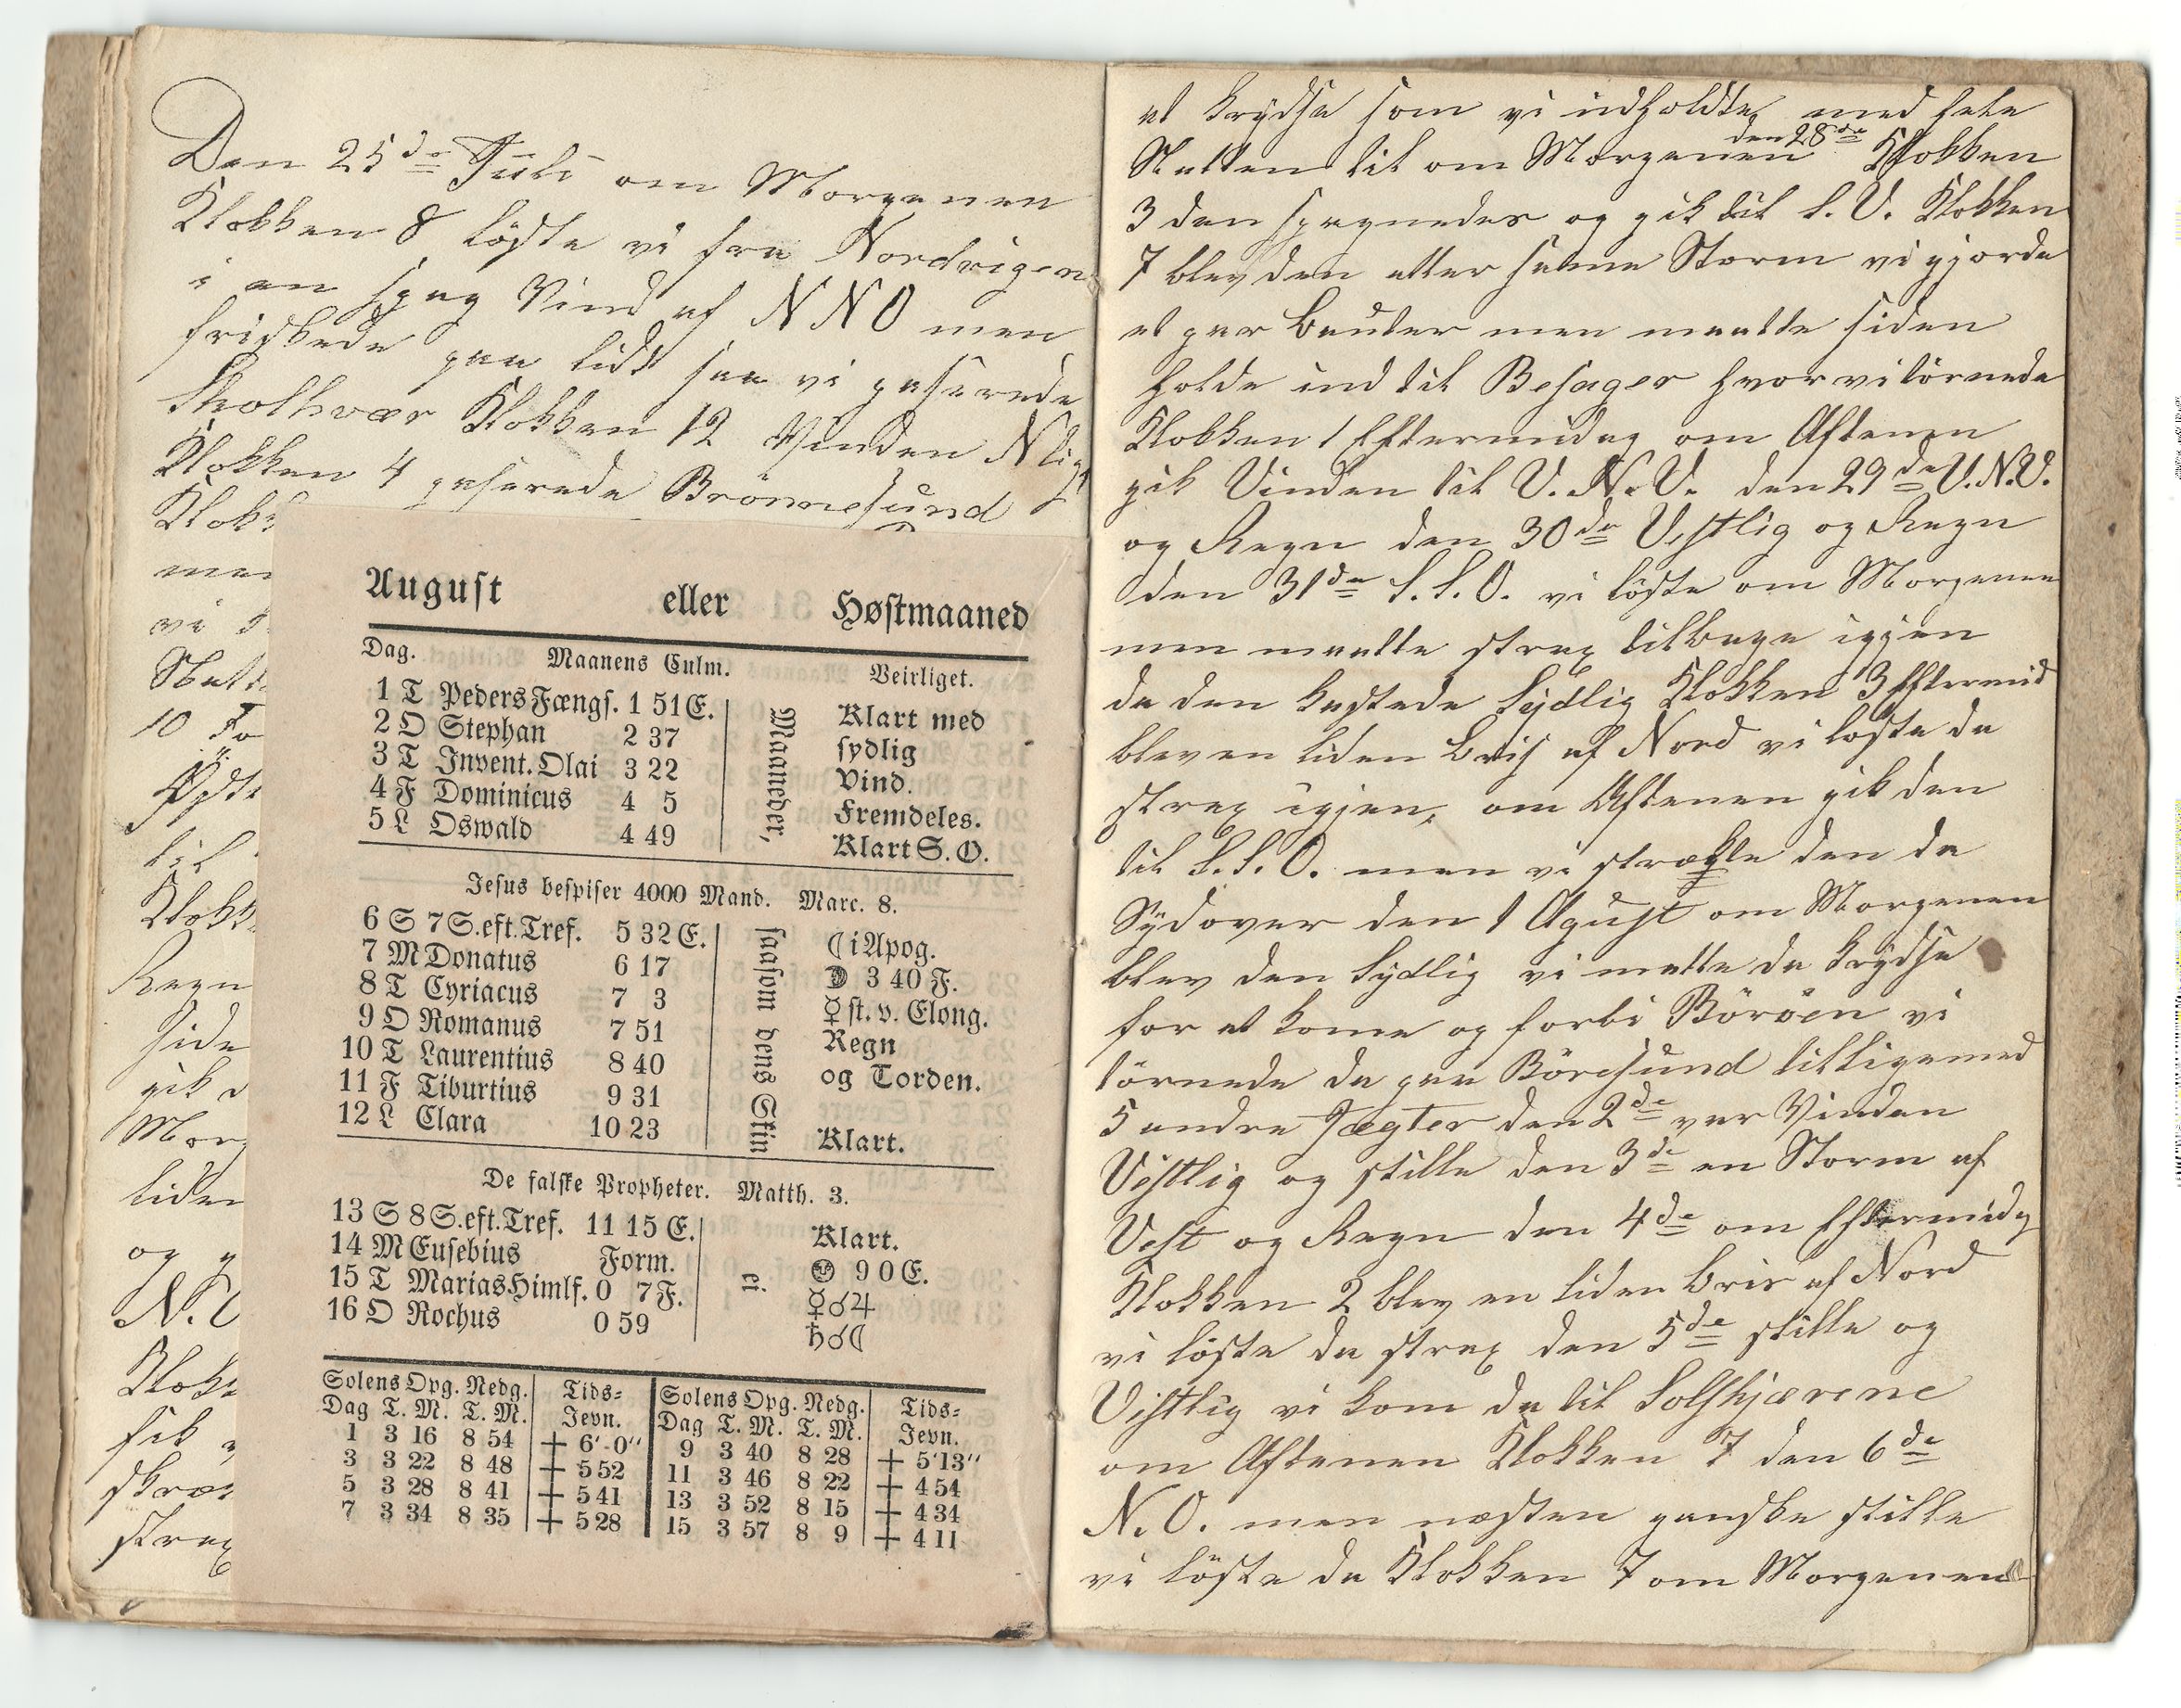 Den 25de Juli om Morgenen
Klokken 8 löste vi fra Nordvigen
i en spag Vind af NNO men
friskede paa lidt saa vi paserede
Skolhvær Klokken 12 Vinden Nlig
Klokken 4 paserede Brönnesund
Klok
men
vi
Natt
10
til
Klokk
Regn
side
gik
Mor
liden
og
N.
Klokk
fik
strax
August eller Høstmaaned
Dag. Maanens Culm. Veirliget.
1 T Peders Fængs. 1 51 E. Klart med
2 O Stephan 2 37 sydlig
3 T Invent. Olai 3 22 Vind.
4 F Dominicus 4 5 Fremdeles.
5 L Oswald 4 49 Klart S. O.
Maaneder,
Jesus bespiser 4000 Mand. Marc. 8.
6 S 7 S. eft. Tref. 5 32 E. ☾ i Apog.
7 M Donatus 6 17 ☽ 3 40 F.
8 T Cyriacus 7 3 ☿ st. v. Elong.
9 O Romanus 7 51 Regn
10 T Laurentius 8 40 og Torden.
11 F Tiburtius 9 31
12 L Clara 10 23 Klart.
saasom dens Stin
De falske Propheter. Matth. 3.
13 S 8 S. eft. Tref. 11 15 E. Klart.
14 M Eusebius Form. 9 0 E.
15 T Marias Himlf. 0 7 F. ☿☌♃
16 O Rochus 0 59 ♄☌☾
ei.
Solens Opg. Nedg. Tids= Solens Opg. Nedg. Tids=
Dag T. M. T. M. Jevn. Dag T. M. T. M. Jevn.
1 3 16 8 54 + 6'-0" 9 3 40 8 28 + 5'13"
3 3 22 8 48 + 5 52 11 3 46 8 22 + 4 54
5 3 28 8 41 + 5 41 13 3 52 8 15 + 4 34
7 3 34 8 35 + 5 28 15 3 57 8 9 + 4 11
at krydse som vi udholdte med hele
Natten til om Morgenen den 28de Klokken
3 den spagnedes og gik til S. V. Klokken
7 blev den atter samme Storm vi gjorde
et par Bauter men maatte siden
holde ind til Besager hvor vi törnede
Klokken 1 Eftermidag om Aftenen
gik Vinden til V. N. V. den 29de V. N. V.
og Regn den 30de Vestlig og Regn
den 31de S. S. O. vi löste om Morgenen
men maatte strax tilbage igjen
da den kastede Sydlig Klokken 3 Eftermid
blev en liden Bris af Nord vi löste da
strax igjen, om Aftenen gik den
til S. S. O. men vi strækte den da
Sydover den 1 Agust om Morgenen
blev den Sydlig vi matte da krydse
for at kome og forbi Böröen vi
törnede da paa Börösund tilligemed
5 andre Jægter den 2de var Vinden
Vestlig og stille den 3de en Storm af
Vest og Regn den 4de om Eftermidg
Klokken 2 blev en liden Bris af Nord
vi löste da strax den 5de stille og
Vestlig vi kom da til Solskjærene
om Aftenen Klokken 7 den 6de
N. O. men næsten ganske stille
vi löste da Klokken 7 om Morgenen